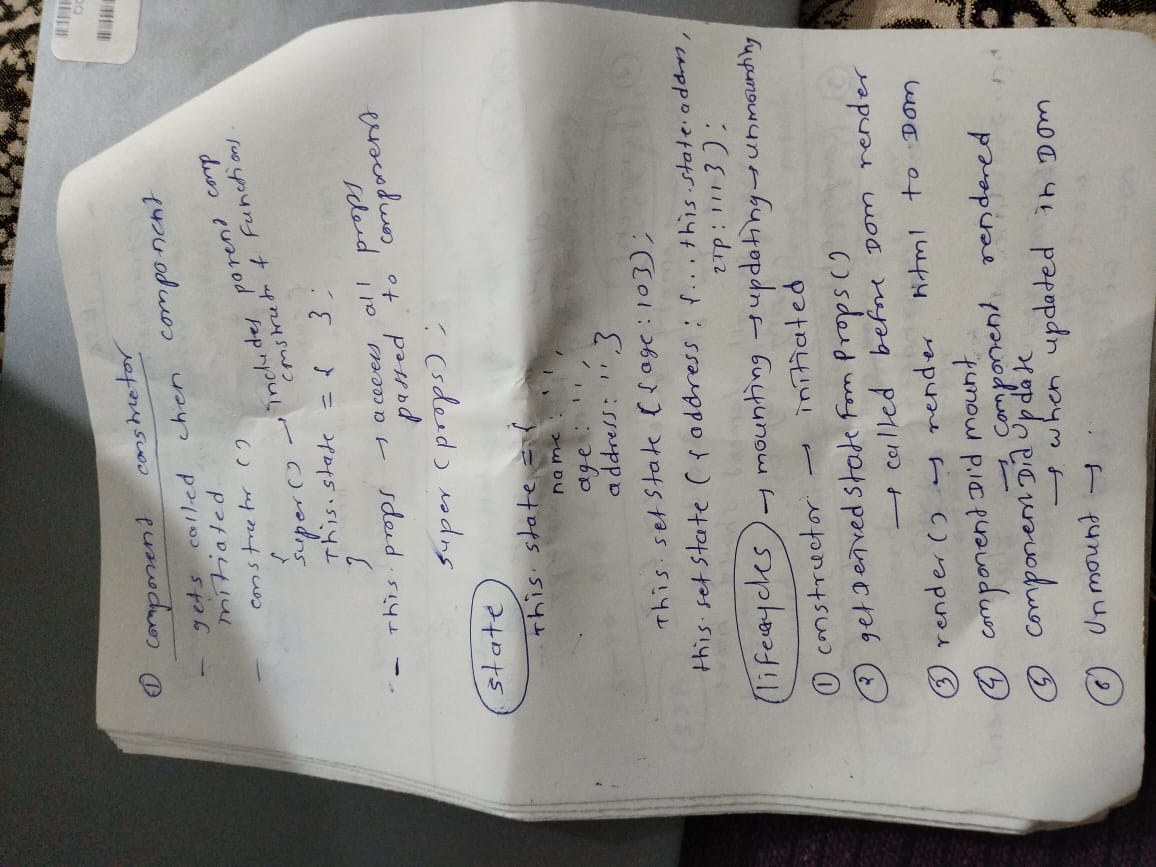 ① component constructor
- gets called when component
initiated
- constructor ()
{
super () → includes parent comp
construtr & functions.
This.state = { };
}
- This.props → access all props
passed to component
super (props);
state
This.state = {
name: '',
age: '',
address: '' }
This.setstate ({age: 10});
this.setstate ({ address: {...this.state.address,
ZIP: 111 });
lifecycles → mounting → updating → unmounting
① constructor → initiated
② getDerivedstatefromprops()
→ called before DOM render
③ render () → render html to DOM
④ componentDidmount
→ component rendered
⑤ componentDidupdate
→ when updated in DOM
⑥ Unmount →